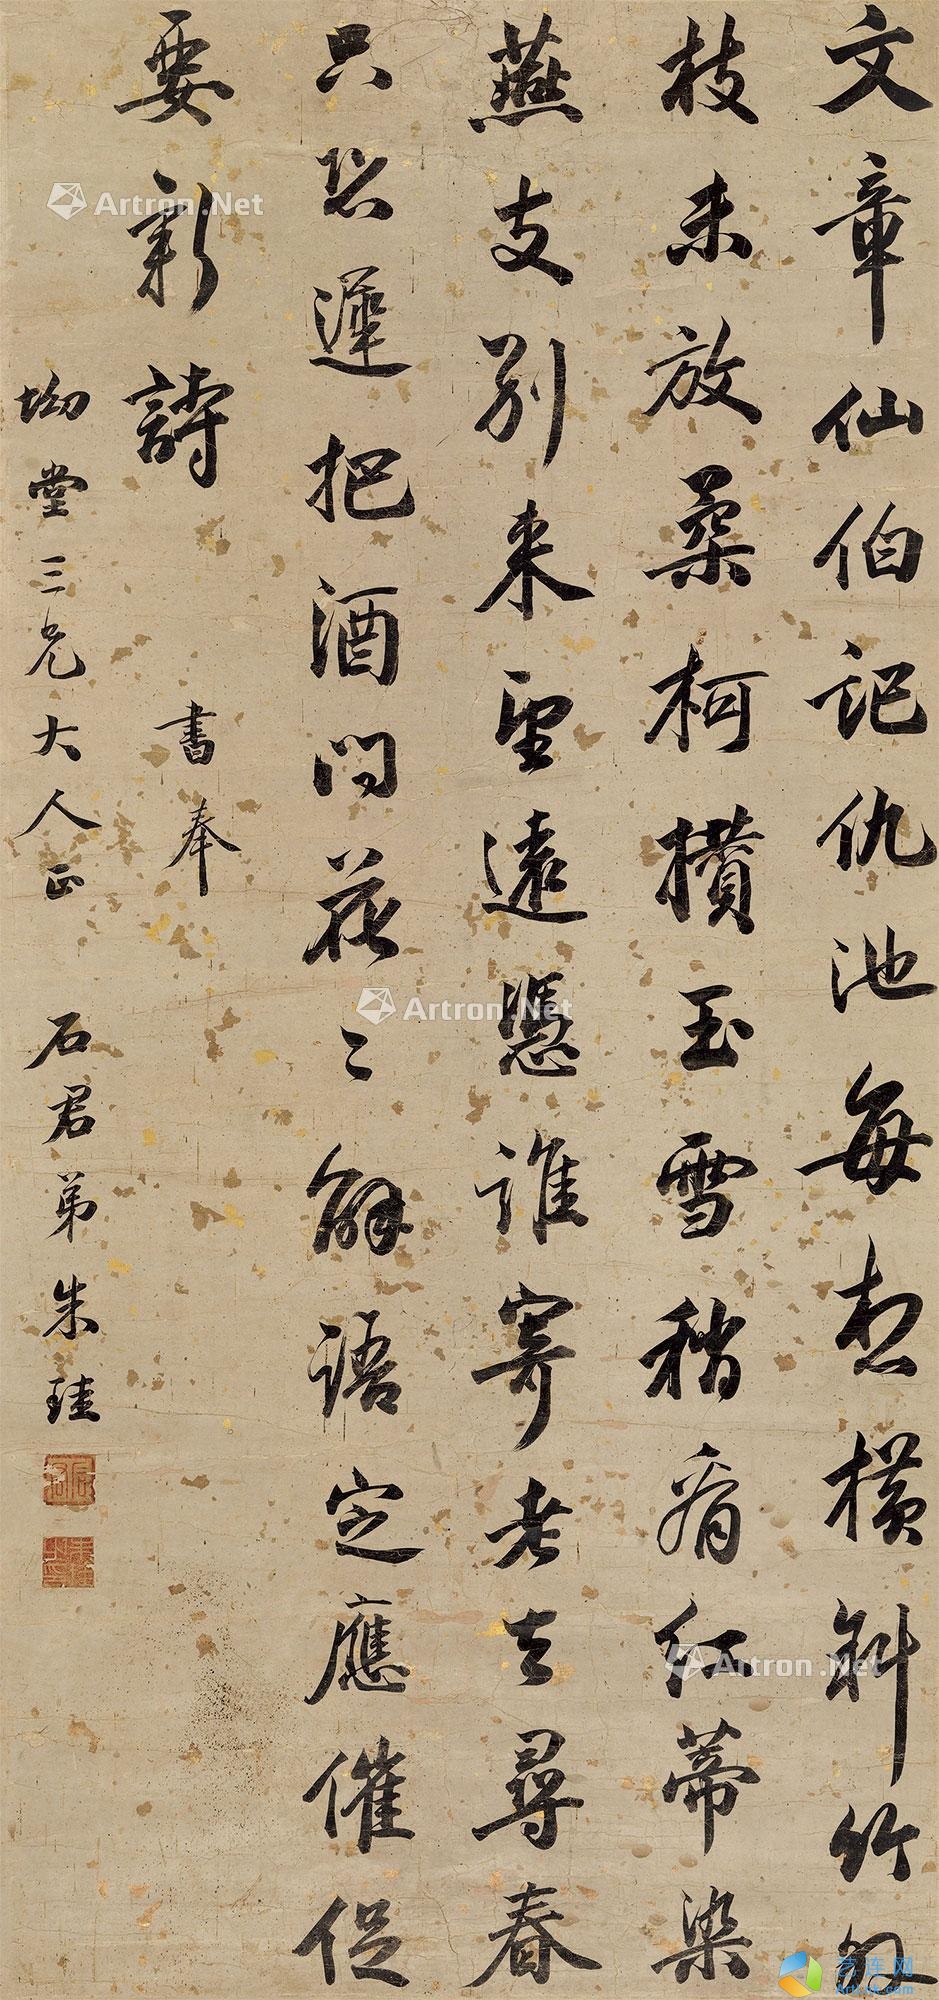 文章仙伯記仇池每想橫斜竹外
枝未放柔柯攢玉雪稍看紅蒂染
燕支別来望遠憑誰寄老去尋春
只恐遲把酒問花〻解語定應催促
要新詩
書奉
坳堂三兄大人正
石君弟朱珪
Artron.Net
Artron.Net
Artron.Net
艺连网